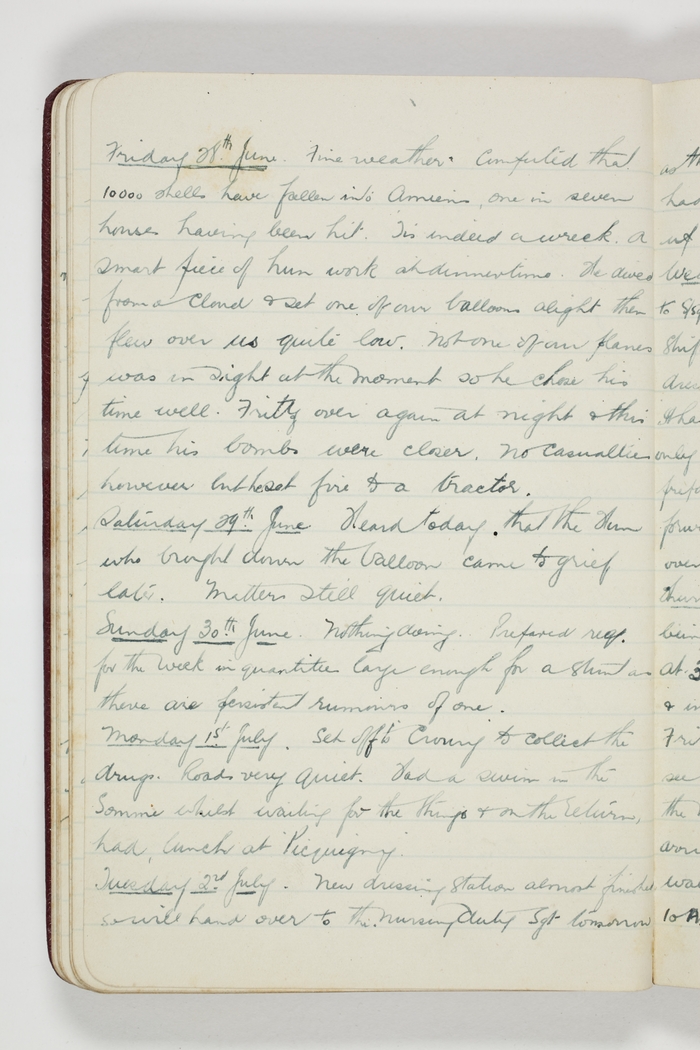 Friday 28th June. Fine weather. Computed that
10000 shells have fallen into Amiens, one in seven
houses having been hit. Tis indeed a wreck. A
smart piece of hun work at dinnertime. He dived
from a cloud & set one of our balloons alight then
flew over us quite low. Not one of our planes
was in sight at the moment so he chose his
time well. Fritz over again at night & this
time his bombs were closer. No casualties
however but he set fire to a tractor.
Saturday 29th June Heard today that the Hun
who brought down the balloon came to grief
late. Matters still quiet.
Sunday 30th June. Nothing doing. Prepared req.
for the week in quantities large enough for a stunt as
there are persistent rumours of one.
Monday 1st July. Set off to Crouy to collect the
drugs. Roads very quiet. Had a swim in the
Somme whilst waiting for the things & on the return,
had lunch at Picquigny.
Tuesday 2nd July. New dressing station almost finished
so will hand over to the Nursing Duty Sgt tomorrow